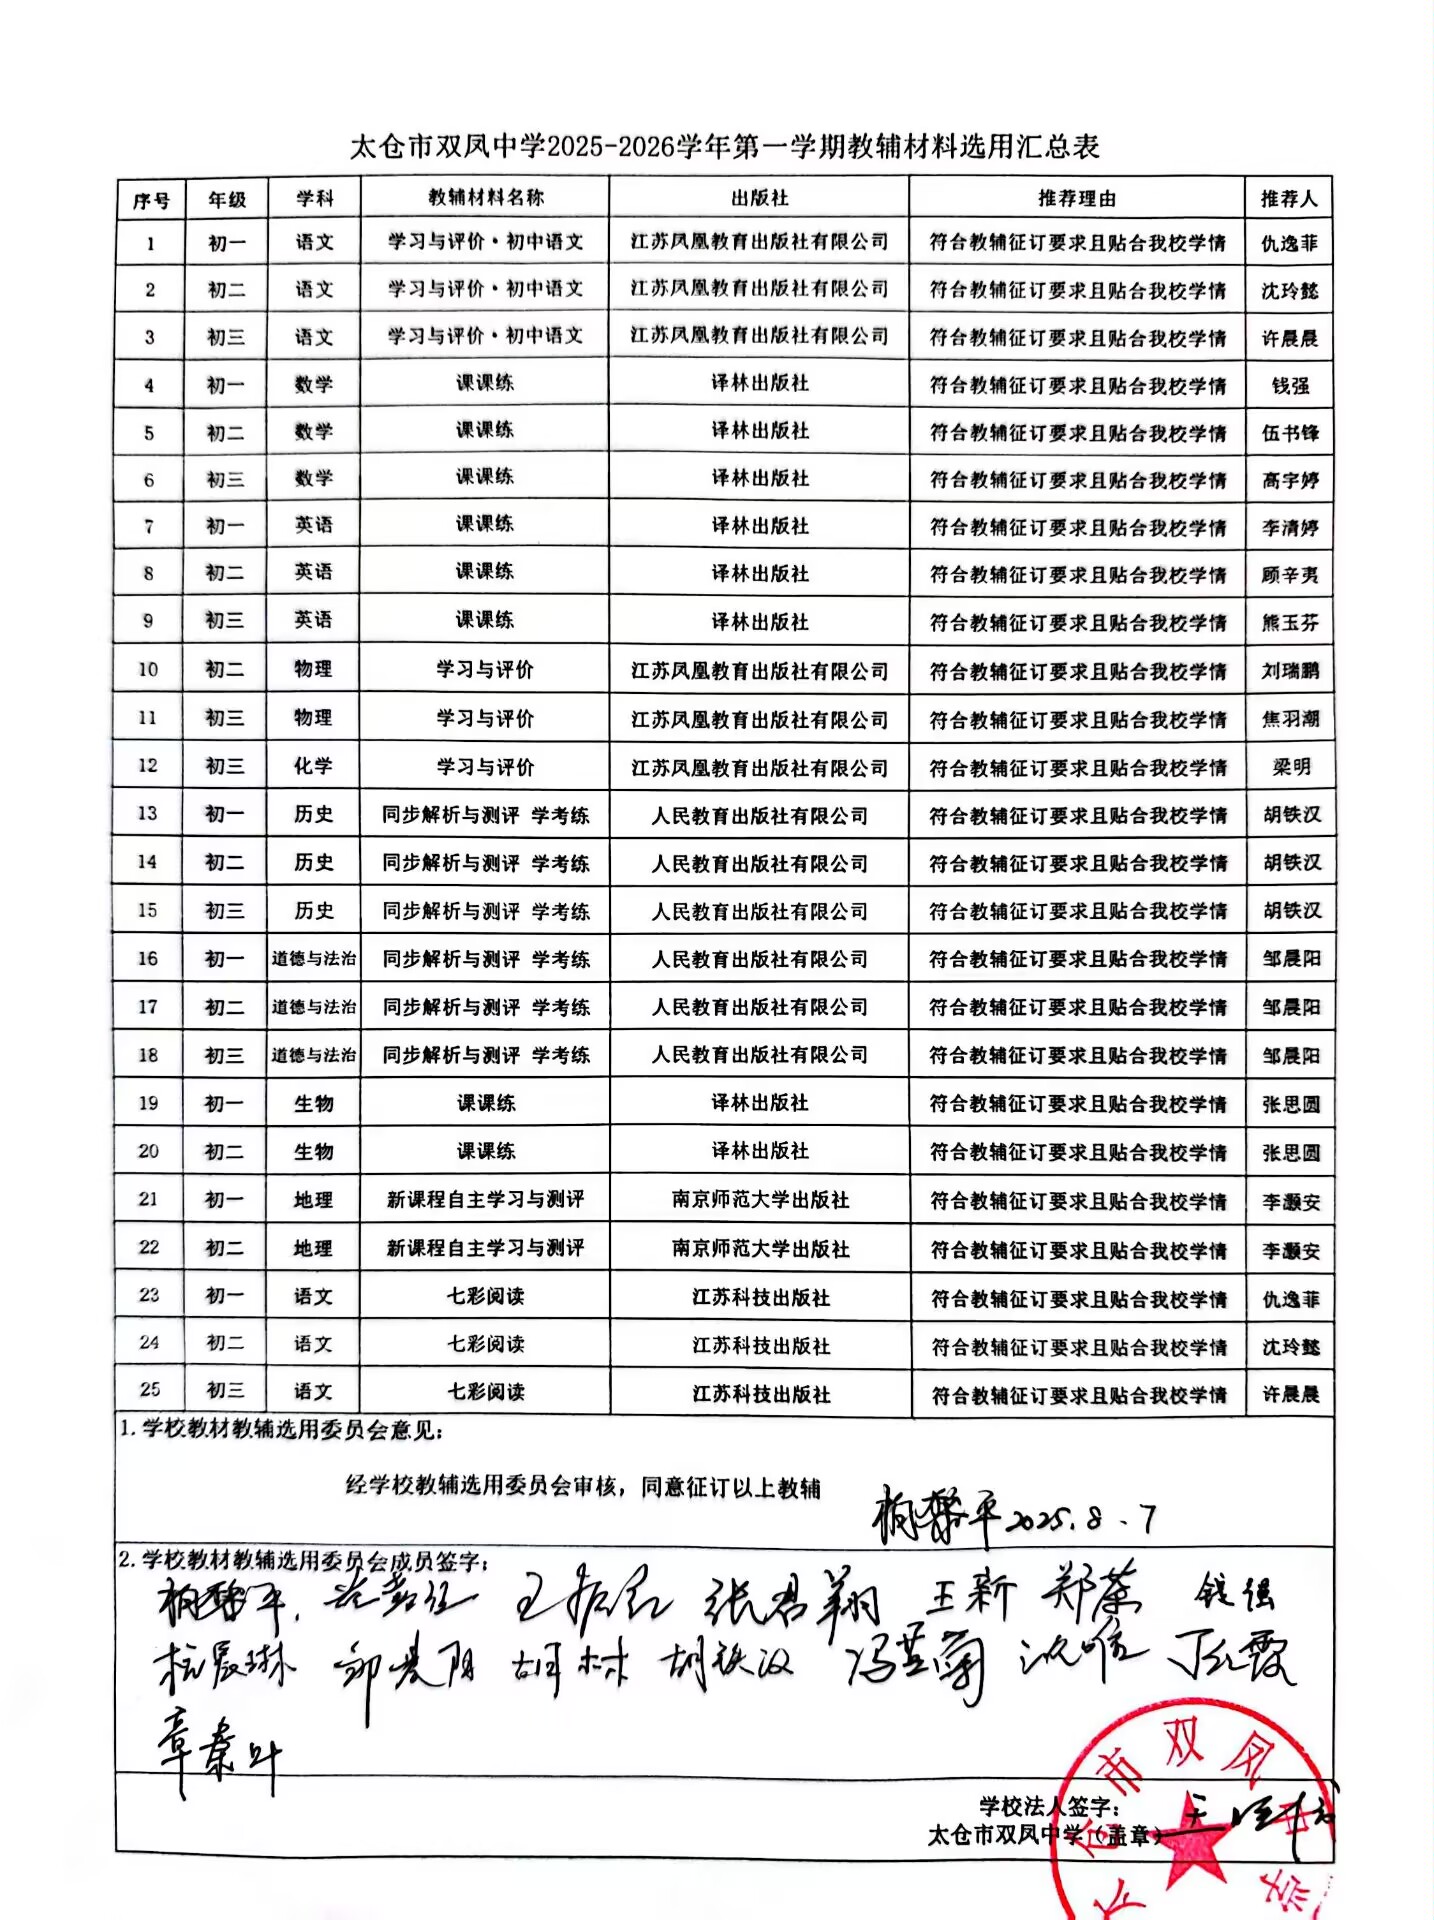 太仓市双凤中学2025-2026学年第一学期教辅材料选用汇总表
序号 年级 学科 教辅材料名称 出版社 推荐理由 推荐人
1 初一 语文 学习与评价·初中语文 江苏凤凰教育出版社有限公司 符合教辅征订要求且贴合我校学情 仇逸菲
2 初二 语文 学习与评价·初中语文 江苏凤凰教育出版社有限公司 符合教辅征订要求且贴合我校学情 沈玲懿
3 初三 语文 学习与评价·初中语文 江苏凤凰教育出版社有限公司 符合教辅征订要求且贴合我校学情 许晨晨
4 初一 数学 课课练 译林出版社 符合教辅征订要求且贴合我校学情 钱强
5 初二 数学 课课练 译林出版社 符合教辅征订要求且贴合我校学情 伍书锋
6 初三 数学 课课练 译林出版社 符合教辅征订要求且贴合我校学情 高宇婷
7 初一 英语 课课练 译林出版社 符合教辅征订要求且贴合我校学情 李清婷
8 初二 英语 课课练 译林出版社 符合教辅征订要求且贴合我校学情 顾辛夷
9 初三 英语 课课练 译林出版社 符合教辅征订要求且贴合我校学情 熊玉芬
10 初二 物理 学习与评价 江苏凤凰教育出版社有限公司 符合教辅征订要求且贴合我校学情 刘瑞鹏
11 初三 物理 学习与评价 江苏凤凰教育出版社有限公司 符合教辅征订要求且贴合我校学情 焦羽潮
12 初三 化学 学习与评价 江苏凤凰教育出版社有限公司 符合教辅征订要求且贴合我校学情 梁明
13 初一 历史 同步解析与测评 学考练 人民教育出版社有限公司 符合教辅征订要求且贴合我校学情 胡铁汉
14 初二 历史 同步解析与测评 学考练 人民教育出版社有限公司 符合教辅征订要求且贴合我校学情 胡铁汉
15 初三 历史 同步解析与测评 学考练 人民教育出版社有限公司 符合教辅征订要求且贴合我校学情 胡铁汉
16 初一 道德与法治 同步解析与测评 学考练 人民教育出版社有限公司 符合教辅征订要求且贴合我校学情 邹晨阳
17 初二 道德与法治 同步解析与测评 学考练 人民教育出版社有限公司 符合教辅征订要求且贴合我校学情 邹晨阳
18 初三 道德与法治 同步解析与测评 学考练 人民教育出版社有限公司 符合教辅征订要求且贴合我校学情 邹晨阳
19 初一 生物 课课练 译林出版社 符合教辅征订要求且贴合我校学情 张思圆
20 初二 生物 课课练 译林出版社 符合教辅征订要求且贴合我校学情 张思圆
21 初一 地理 新课程自主学习与测评 南京师范大学出版社 符合教辅征订要求且贴合我校学情 李灏安
22 初二 地理 新课程自主学习与测评 南京师范大学出版社 符合教辅征订要求且贴合我校学情 李灏安
23 初一 语文 七彩阅读 江苏科技出版社 符合教辅征订要求且贴合我校学情 仇逸菲
24 初二 语文 七彩阅读 江苏科技出版社 符合教辅征订要求且贴合我校学情 沈玲懿
25 初三 语文 七彩阅读 江苏科技出版社 符合教辅征订要求且贴合我校学情 许晨晨
1.学校教材教辅选用委员会意见：
经学校教辅选用委员会审核，同意征订以上教辅
2025.8.7
2.学校教材教辅选用委员会成员签字：
张君翔 王新 郑荣 钱强
胡林 胡铁汉 冯英兰
学校法人签字：
太仓市双凤中学（盖章）
市双凤中